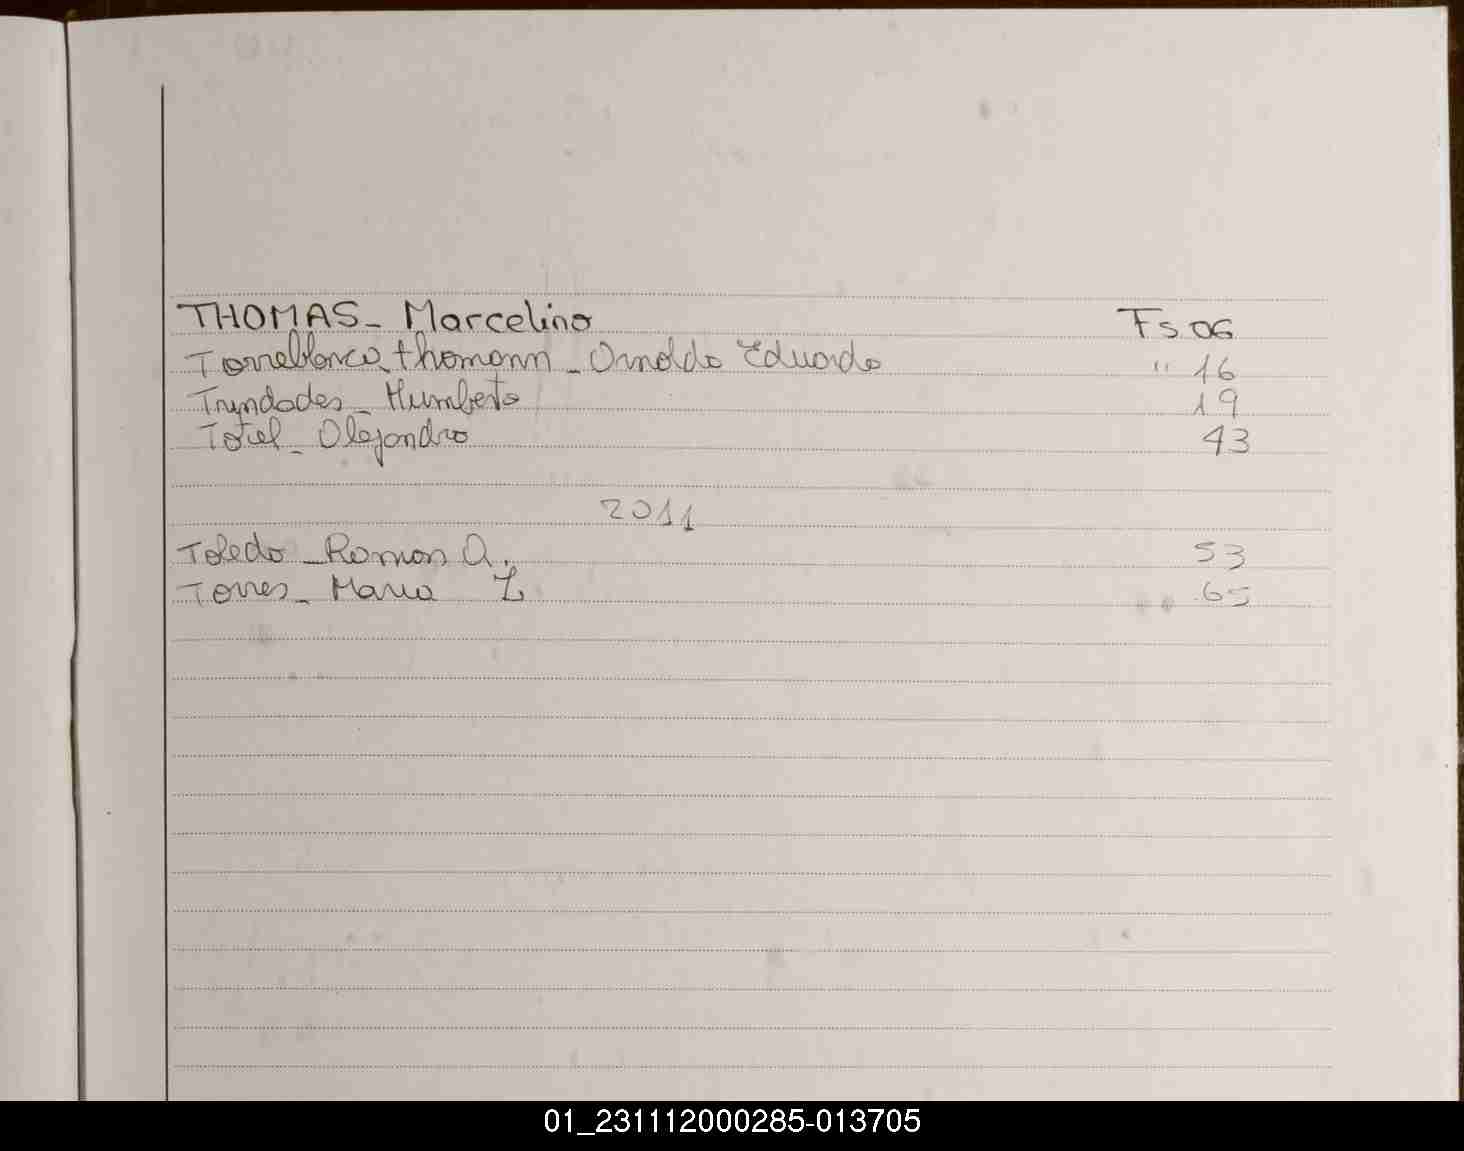 THOMAS_ Marcelino Fs 06
Torreblanca thomann_ Arnoldo Eduardo " 16
Tryndades_ Humberto 19
Totel_ Alejandro 43
2011
Toledo_ Ramon A. 53
Torres_ Maria Z 65
01_231112000285-013705